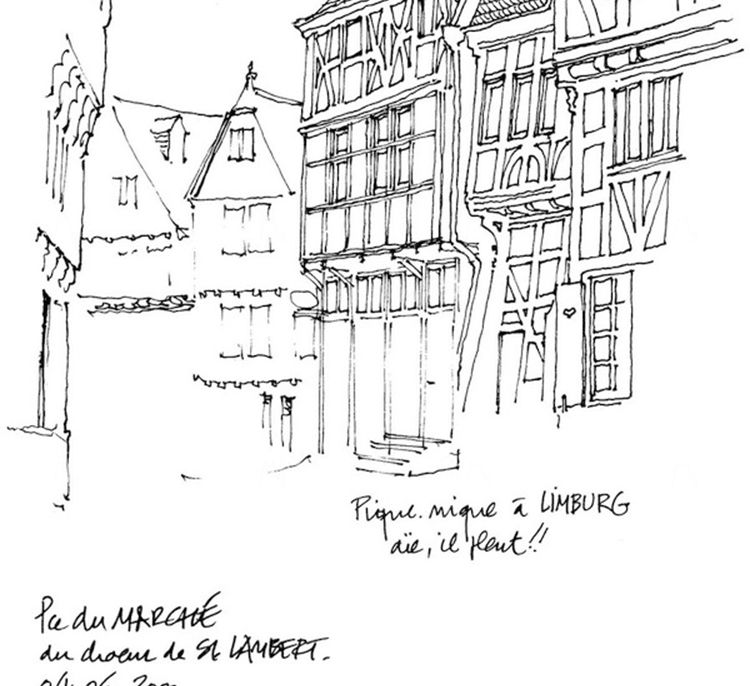 Pique.nique à LIMBURG
aïe, il pleut!!
Pce du MARCHÉ
du choeur de St LAMBERT.